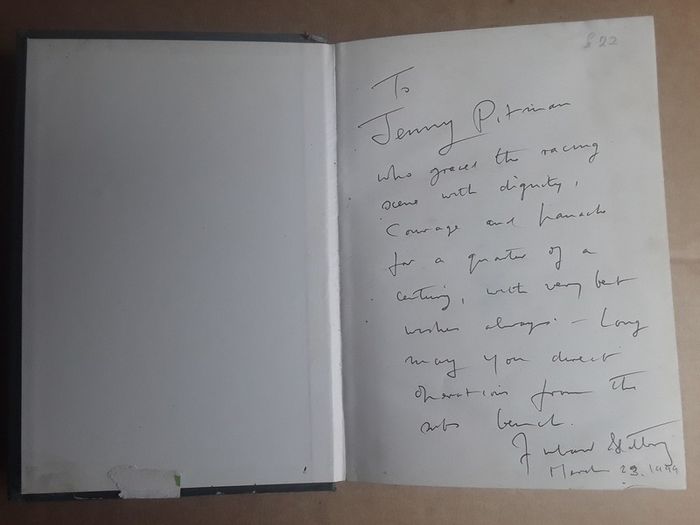 822
To
Jenny Pitman
who graces the racing
scene with dignity,
Courage and panache
for a quarter of a
century, with very best
wishes always – Long
may you direct
operations from the
subs bench.
March 23. 1999